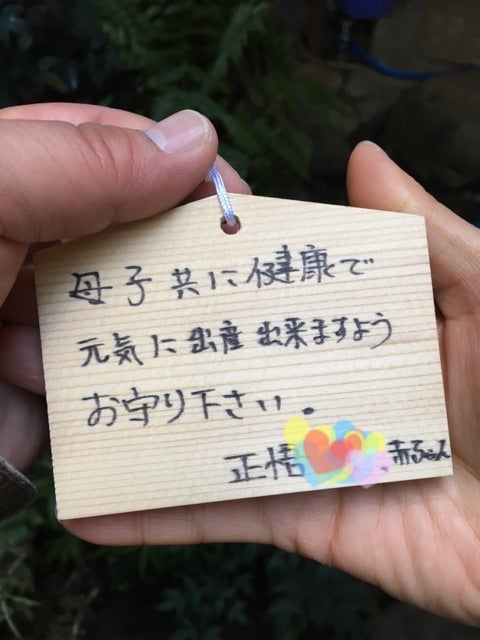 母子共に健康で
元気に出産出来ますよう
お守り下さい。
正悟 赤ちゃん